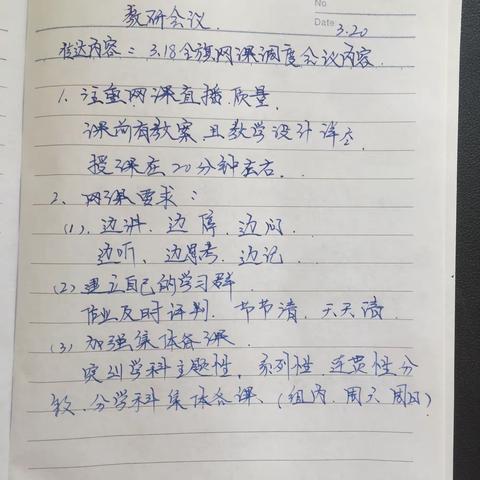 No
教研会议.
Date 3.20
传达内容: 3.18全旗网课调度会议内容.
1. 注重网课直播质量.
课前有教案,且教学设计详尽
授课在20分钟左右.
2. 网课要求:
(1). 边讲、边 、边问.
边听、边思考、边记.
(2) 建立自己的学习群.
作业及时评判. 节节清、天天清.
(3) 加强集体备课.
突出学科主题性、系列性、连贯性分
 、分学科集体备课、(组内、周六、周日)